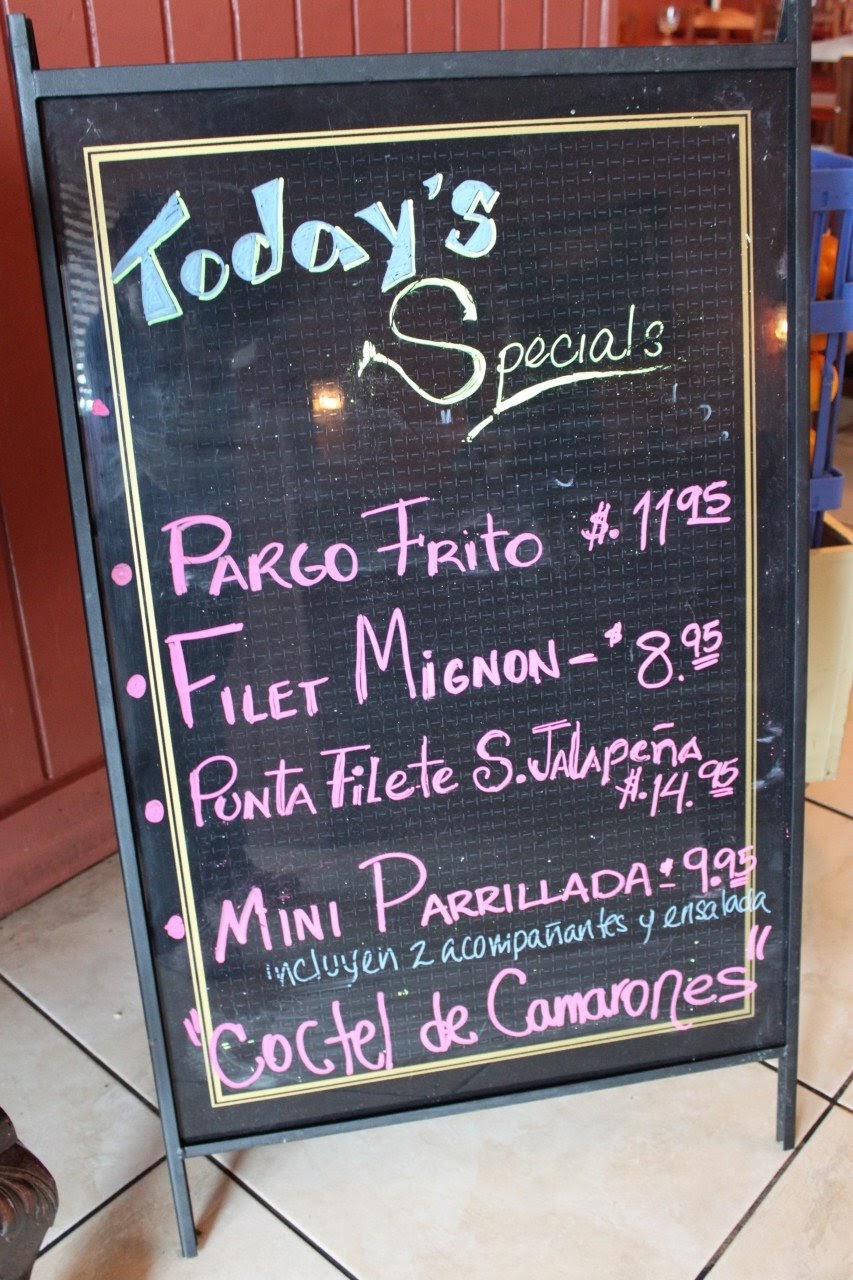 Today's
Specials
• PARGO FRITO $.11 95
• FILET MIGNON - $ 8.95
• PUNTA FILETE S. JALAPEÑA
$.14.95
• MINI PARRILLADA $ 9.95
incluyen 2 acompañantes y ensalada
"Coctel de Camarones"